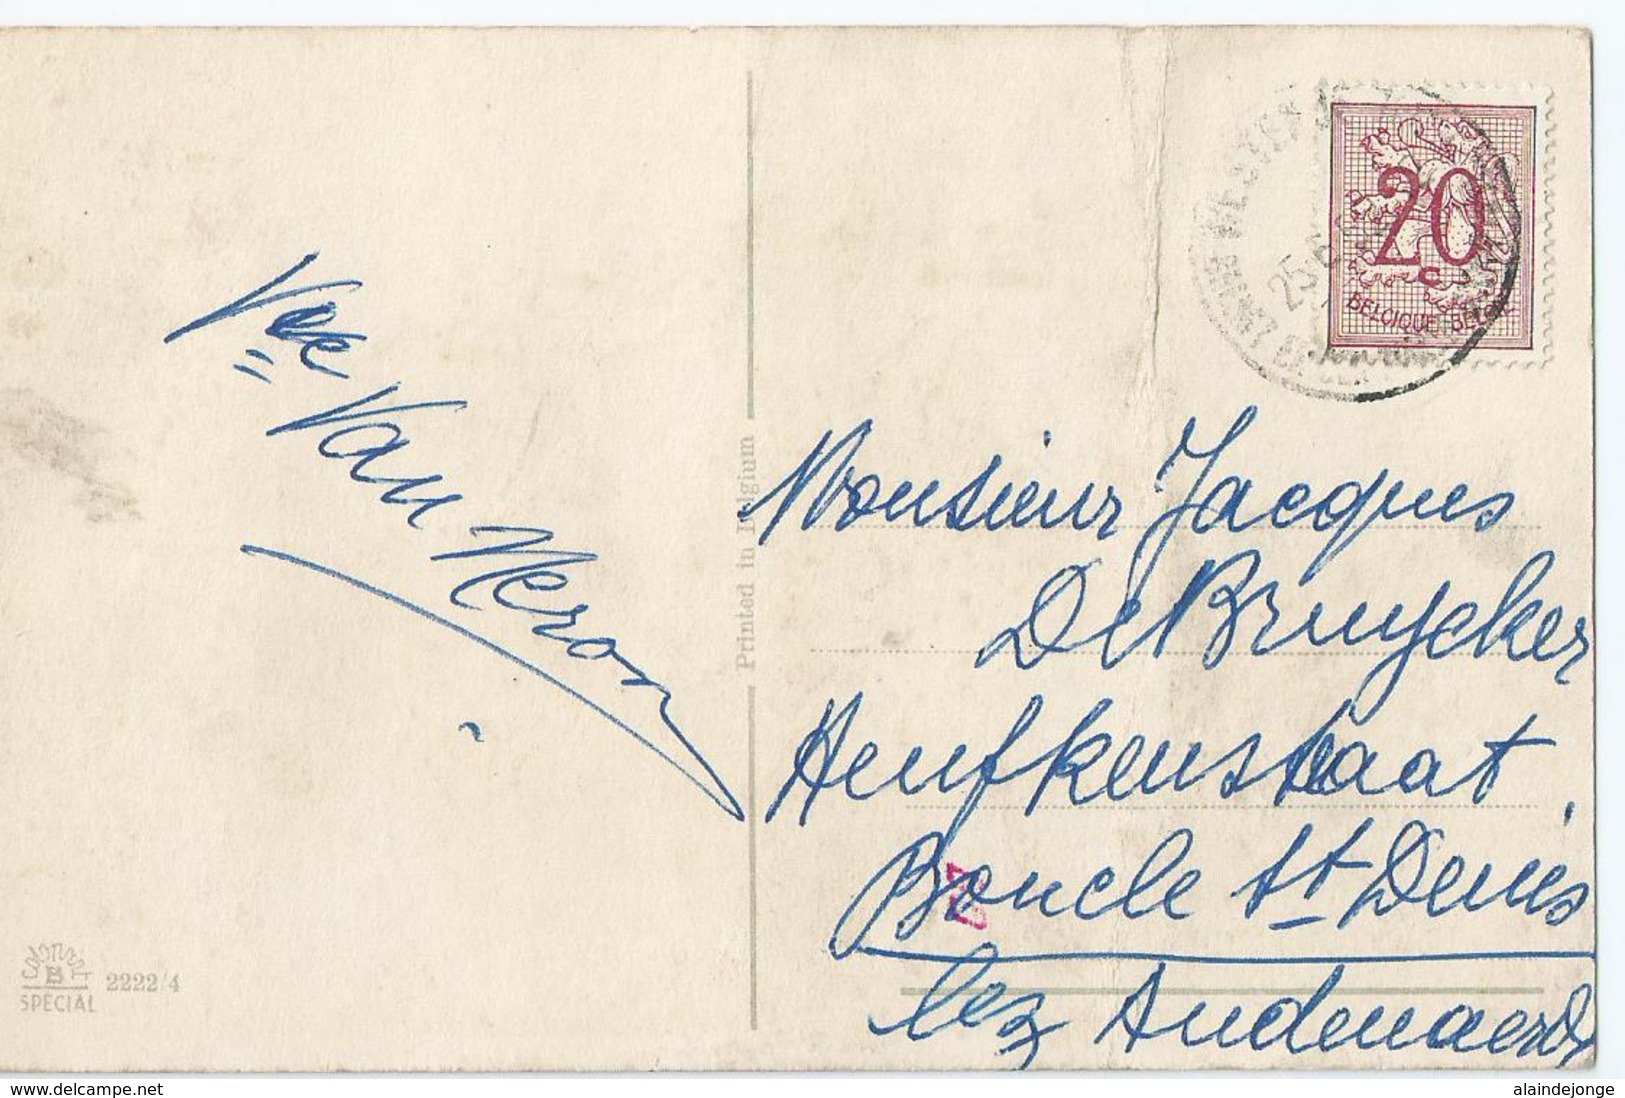 Vve Van Neron
Printed in Belgium
20
c
BELGIQUE BELGIE
25
Monsieur Jacques
De Bruycker
Heufkenstraat,
Boucle St Denis
lez Audenaerde
colorprint
B
SPECIAL
2222/4
www.delcampe.net
alaindejonge